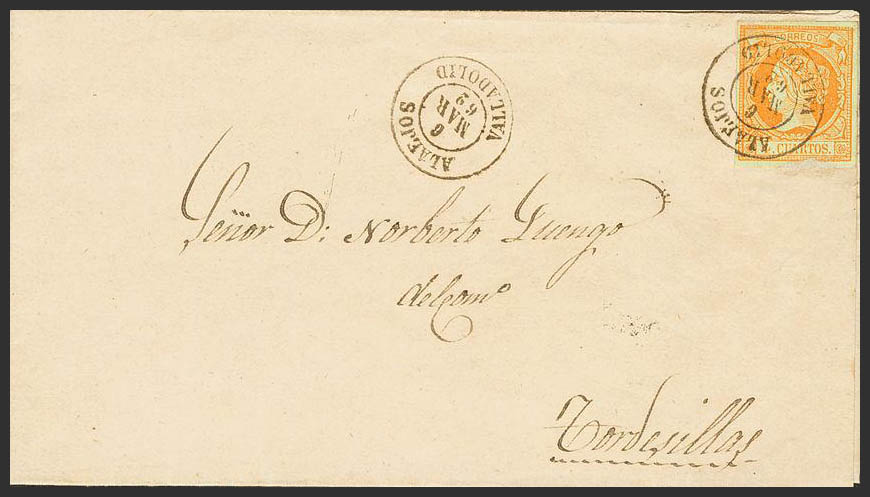 CORREOS
CUARTOS.
ALAEJOS
6
MAR
62
VALLADOLID
ALAEJOS
6
MAR
62
VALLADOLID
Señor D: Norberto Luengo
del Comº
Tordesillas